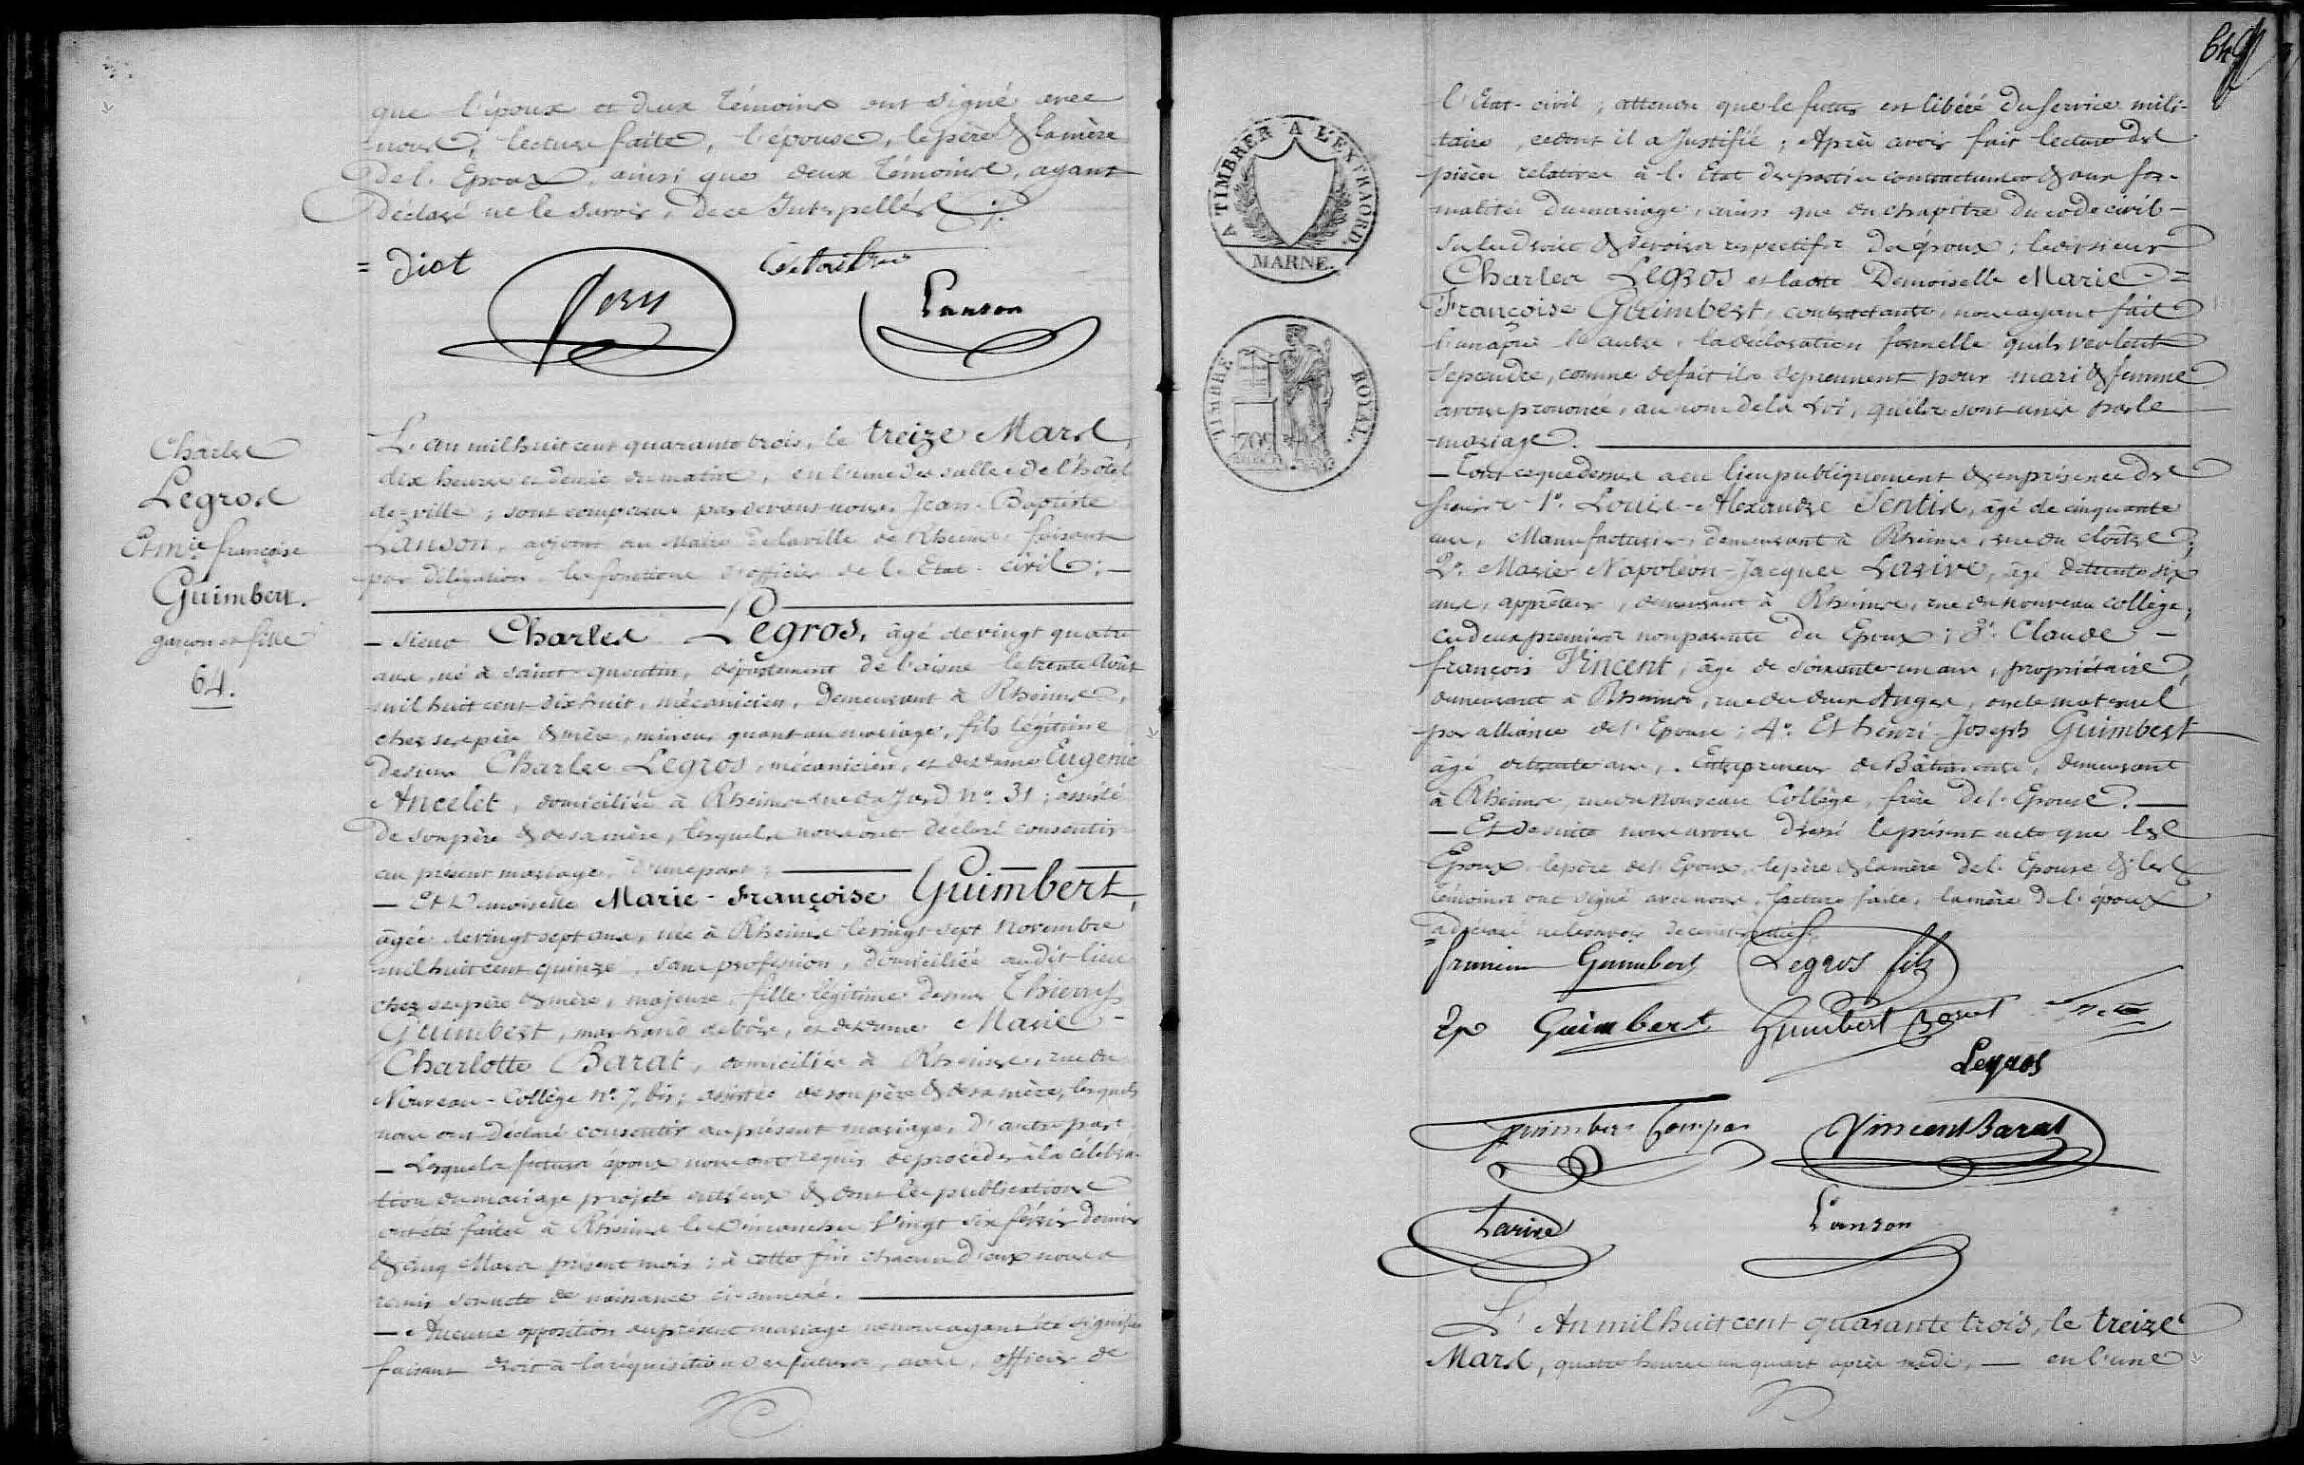 que l'époux et deux témoins ont signé avec
nous, lecture faite, l'épouse, le père & la mère
de l'Epoux, ainsi que deux témoins, ayant
déclaré ne le savoir, de ce Interpellés ;.
= diot
Lanson
Charles
Legros
Et Mie françoise
Guimbert.
garçon et fille
64.
L'an mil huit cent quarante trois, le treize Mars,
dix heures et demie du matin, en l'une des salles de l'hôtel
de-ville ; sont comparus pardevant nous, Jean-Baptiste
Lanson, adjoint au Maire de la ville de Rheims, faisant
par délégation les fonctions d'officier de l'Etat-civil ; —
— sieur Charles Legros, âgé de vingt quatre
ans, né à Saint-quentin, département de l'aisne le trente Août
mil huit cent dix huit, mécanicien, demeurant à Rheims,
chez ses père & mère, mineur quant au mariage, fils légitime
de sieur Charles Legros, mécanicien, et de dame Eugenie
Ancelet, domiciliés à Rheims rue du Jard No. 31 ; assisté
de son père & de sa mère, lesquels nous ont déclaré consentir
au présent mariage, d'une part ; —
— Et Demoiselle Marie-Françoise Guimbert,
âgée de vingt sept ans, née à Rheims le vingt sept Novembre
mil huit cent quinze, sans profession, domiciliée audit lieu
chez ses père & mère, majeure, fille légitime de sieur Thierry
Guimbert, marchand de bois, et de dame Marie-
Charlotte Barat, domiciliés à Rheims, rue du
Nouveau-Collège No. 7 bis ; assistée de son père & de sa mère, lesquels
nous ont déclaré consentir au présent mariage, d'autre part.
— Lesquels futurs époux nous ont requis de procéder à la célébra-
tion du mariage projeté entr'eux & dont les publications
ont été faites à Rheims les Dimanches Vingt six février dernier
& cinq Mars présent mois ; à cette fin chacun d'eux nous a
remis son acte de naissance ci-annexé. —
— Aucune opposition au présent mariage ne nous ayant été signifiée
faisant droit à la réquisition des futurs, nous, officier de
64
A TIMBRER A L'EXTRAORD.
MARNE.
TIMBRE ROYAL.
l'Etat-civil ; attendu que le futur est libéré du service mili-
taire, ce dont il a Justifié ; Après avoir fait lecture des
pièces relatives à l'Etat des parties contractantes & aux for-
malités du mariage, ainsi que du chapitre du code civil -
sur les droits & devoirs respectifs des époux ; ledit sieur
Charles Legros et ladite Demoiselle Marie =
Françoise Guimbert, contractants, nous ayant fait
l'un après l'autre, la déclaration formelle qu'ils veulent
se prendre, comme de fait ils se prennent pour mari & femme
avons prononcé, au nom de la Loi, qu'ils sont unis par le
mariage. —
— Tout ce que dessus a eu lieu publiquement & en présence des
sieurs 1o. Louis-Alexandre Sentis, âgé de cinquante
ans, Manufacturier, demeurant à Rheims, rue du cloître ;
2o. Marie-Napoléon-Jacques Larive, âgé de trente six
ans, apprêteur, demeurant à Rheims, rue du nouveau collège,
ces deux premiers non parents des Epoux ; 3o. Claude -
françois Vincent, âgé de soixante-un ans, propriétaire,
demeurant à Rheims, rue des deux Anges, oncle maternel
par alliance de l'Epouse ; 4o. Et henri Joseph Guimbert
âgé de trente ans, Entrepreneur de Bâtiments, demeurant
à Rheims, rue du Nouveau Collège, frère de l'Epouse. —
— Et de suite nous avons dressé le présent acte que les
Epoux, le père de l'Epoux, le père & la mère de l'Epouse & les
témoins ont signé avec nous, lecture faite, la mère de l'époux
a déclaré ne le savoir de ce
Guimbert Legros fils
Guimbert Guimbert Barat
Legros
Guimbert Vincent Barat
Larive Lanson
L'An mil huit cent quarante trois, le treize
Mars, quatre heures un quart après midi, — en l'une